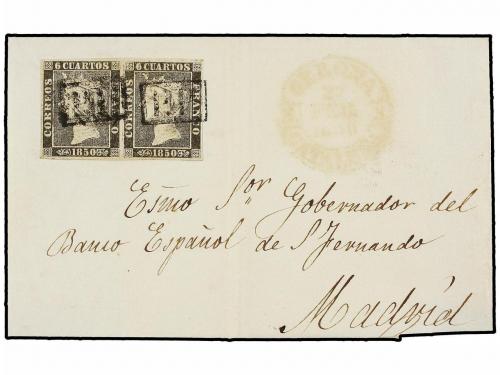 6 CUARTOS 6 CUARTOS
CORREOS FRANCO CORREOS FRANCO
1850 1850
Esmo Sor Gobernador del
Banco Español de S Fernando
Madrid